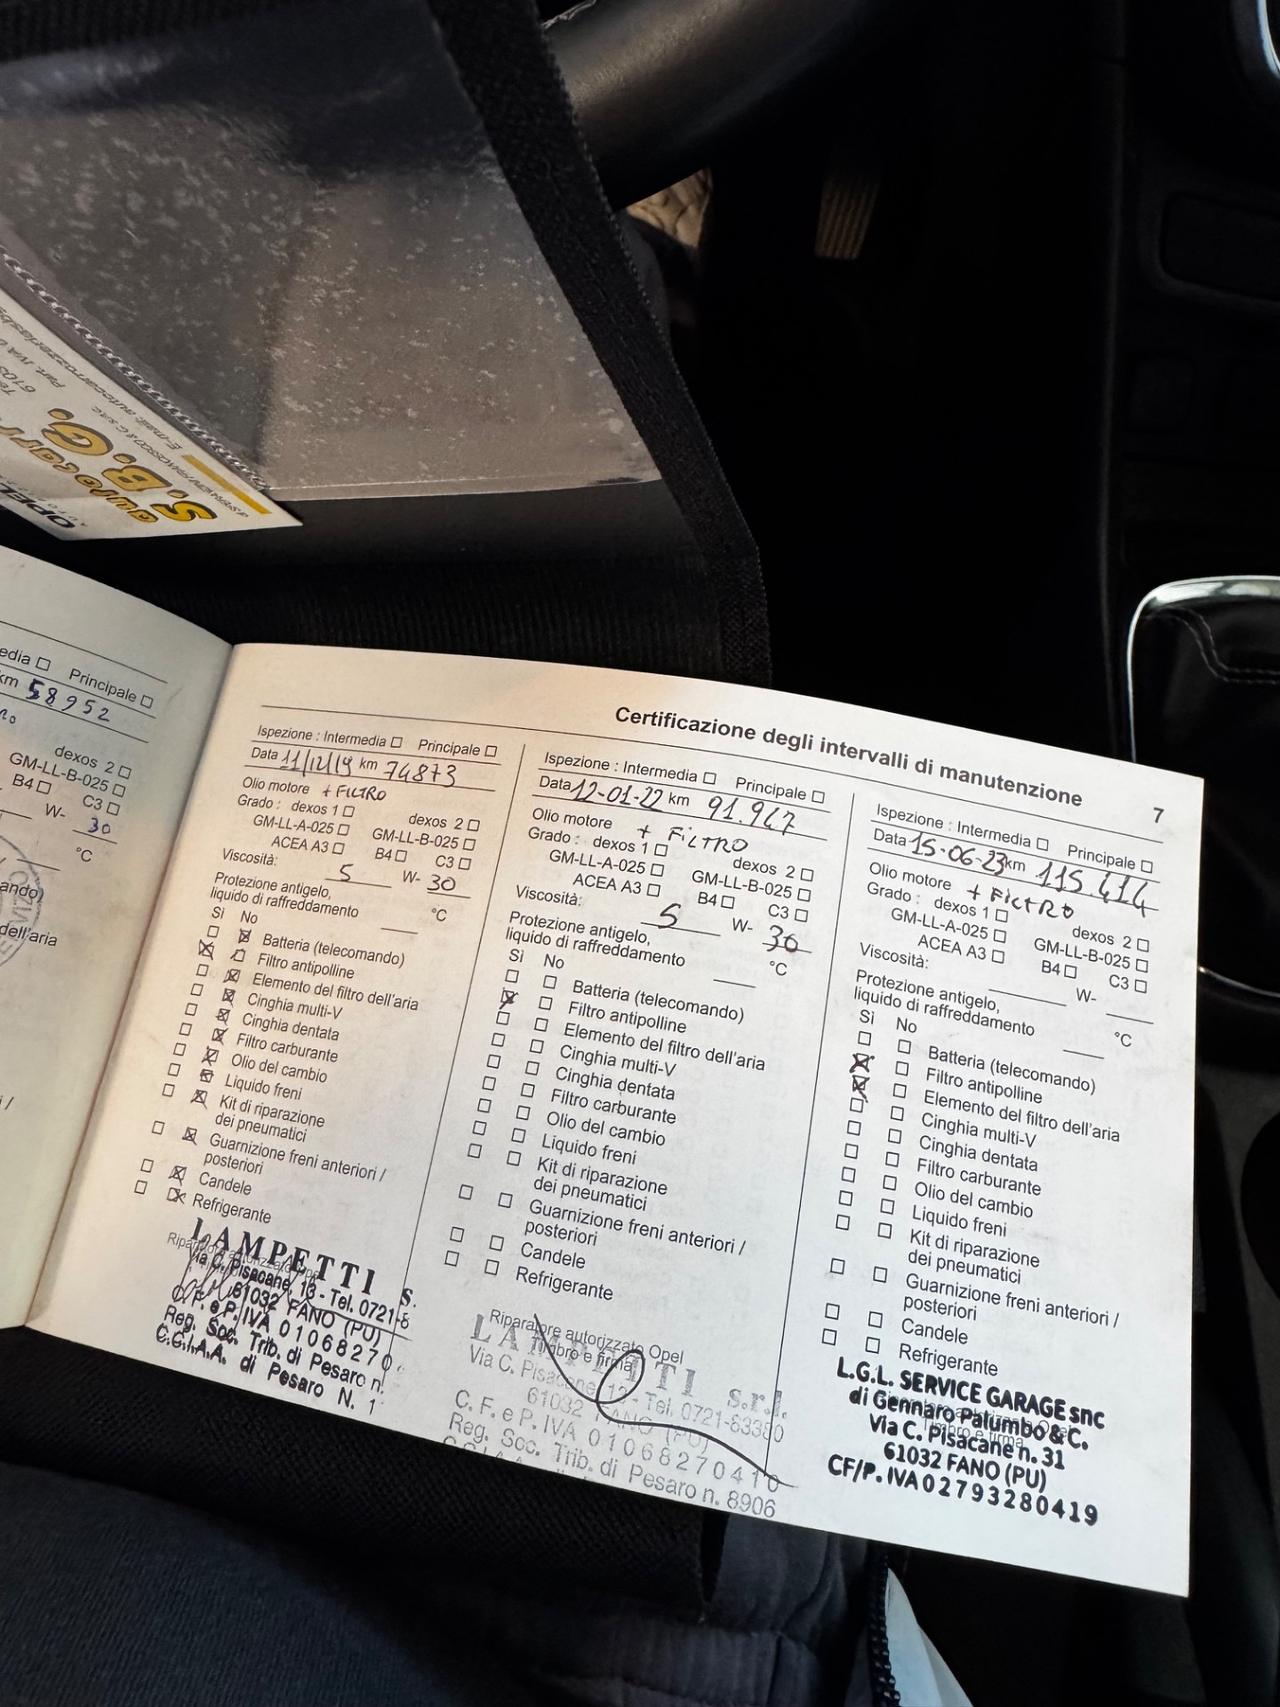 OPEL
autocarr
S.B.G.
E-mail: autocarrozzeriasb
Part. IVA 0
edia ☐ Principale ☐
km 58952
dexos 2 ☐
GM-LL-B-025 ☐
B4 ☐ C3 ☐
W- 30
°C
ando)
dell'aria
i /
Certificazione degli intervalli di manutenzione
7
Ispezione : Intermedia ☐ Principale ☐
Data 11/12/19 km 74873
Olio motore + FILTRO
Grado : dexos 1 ☐ dexos 2 ☐
GM-LL-A-025 ☐ GM-LL-B-025 ☐
ACEA A3 ☐ B4 ☐ C3 ☐
Viscosità: 5 W- 30
Protezione antigelo,
liquido di raffreddamento °C
Sì No
☐ ☒ Batteria (telecomando)
☒ ☐ Filtro antipolline
☐ ☒ Elemento del filtro dell'aria
☐ ☒ Cinghia multi-V
☐ ☒ Cinghia dentata
☐ ☒ Filtro carburante
☐ ☒ Olio del cambio
☐ ☒ Liquido freni
☐ ☒ Kit di riparazione
dei pneumatici
☐ ☒ Guarnizione freni anteriori /
posteriori
☐ ☒ Candele
☐ ☒ Refrigerante
LAMPETTI s.
Via C. Pisacane, 13 - Tel. 0721-8
61032 FANO (PU)
C.F. e P. IVA 01068270
Reg. Soc. Trib. di Pesaro n.
C.C.I.A.A. di Pesaro N. 1
Ispezione : Intermedia ☐ Principale ☐
Data 12-01-22 km 91.947
Olio motore + FILTRO
Grado : dexos 1 ☐ dexos 2 ☐
GM-LL-A-025 ☐ GM-LL-B-025 ☐
ACEA A3 ☐ B4 ☐ C3 ☐
Viscosità: 5 W- 30
Protezione antigelo,
liquido di raffreddamento °C
Sì No
☐ ☐ Batteria (telecomando)
☒ ☐ Filtro antipolline
☐ ☐ Elemento del filtro dell'aria
☐ ☐ Cinghia multi-V
☐ ☐ Cinghia dentata
☐ ☐ Filtro carburante
☐ ☐ Olio del cambio
☐ ☐ Liquido freni
☐ ☐ Kit di riparazione
dei pneumatici
☐ ☐ Guarnizione freni anteriori /
posteriori
☐ ☐ Candele
☐ ☐ Refrigerante
Riparatore autorizzato Opel
Timbro e firma
LAMPETTI s.r.l.
Via C. Pisacane, 13 - Tel. 0721-83380
61032 FANO (PU)
C. F. e P. IVA 01068270410
Reg. Soc. Trib. di Pesaro n. 8906
Ispezione : Intermedia ☐ Principale ☐
Data 15-06-23 km 115.414
Olio motore + FILTRO
Grado : dexos 1 ☐ dexos 2 ☐
GM-LL-A-025 ☐ GM-LL-B-025 ☐
ACEA A3 ☐ B4 ☐ C3 ☐
Viscosità: W-
Protezione antigelo,
liquido di raffreddamento °C
Sì No
☐ ☐ Batteria (telecomando)
☒ ☐ Filtro antipolline
☒ ☐ Elemento del filtro dell'aria
☐ ☐ Cinghia multi-V
☐ ☐ Cinghia dentata
☐ ☐ Filtro carburante
☐ ☐ Olio del cambio
☐ ☐ Liquido freni
☐ ☐ Kit di riparazione
dei pneumatici
☐ ☐ Guarnizione freni anteriori /
posteriori
☐ ☐ Candele
☐ ☐ Refrigerante
L.G.L. SERVICE GARAGE snc
di Gennaro Palumbo & C.
Via C. Pisacane n. 31
61032 FANO (PU)
CF/P. IVA 02793280419